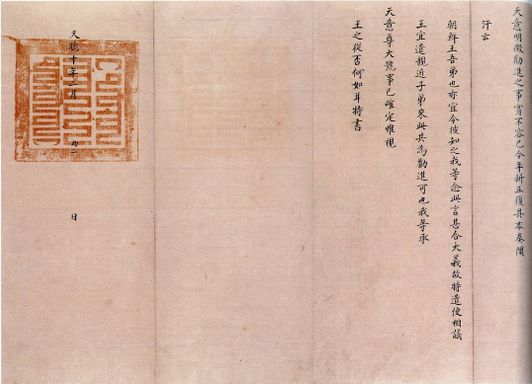 天意明徵勸進之事實不容已今年新正復具本奏聞
汗云
朝鮮王吾弟也亦宜令彼知之我等念此言甚合大義故特遣使相議
王宜遣親近子弟來此共為勸進可也我等承
天意尊大號事已確定惟視
王之從否何如耳特書
天聰十年二月 初二 日